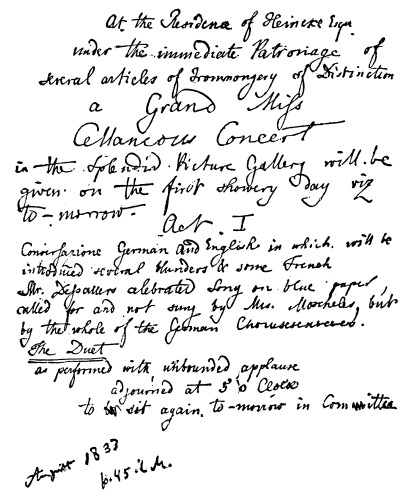 At the Residence of Heincke Esqr.
under the immediate Patronage of
several articles of Ironmongery of Distinction
a Grand Miss
Cellaneous Concert
in the Splendid Picture Gallery will be
given on the first showery day viz
to-morrow.
Act. I
Conversazione German and English in which will be
introduced several blunders & some French
Mr. celebrated song on blue paper,
called for and not sung by Mrs. Moscheles, but
by the whole of the German
The Duet
as performed with unbounded applause
adjourned at 5 o'Clock
to sit again to-morrow in Committee
August 1833